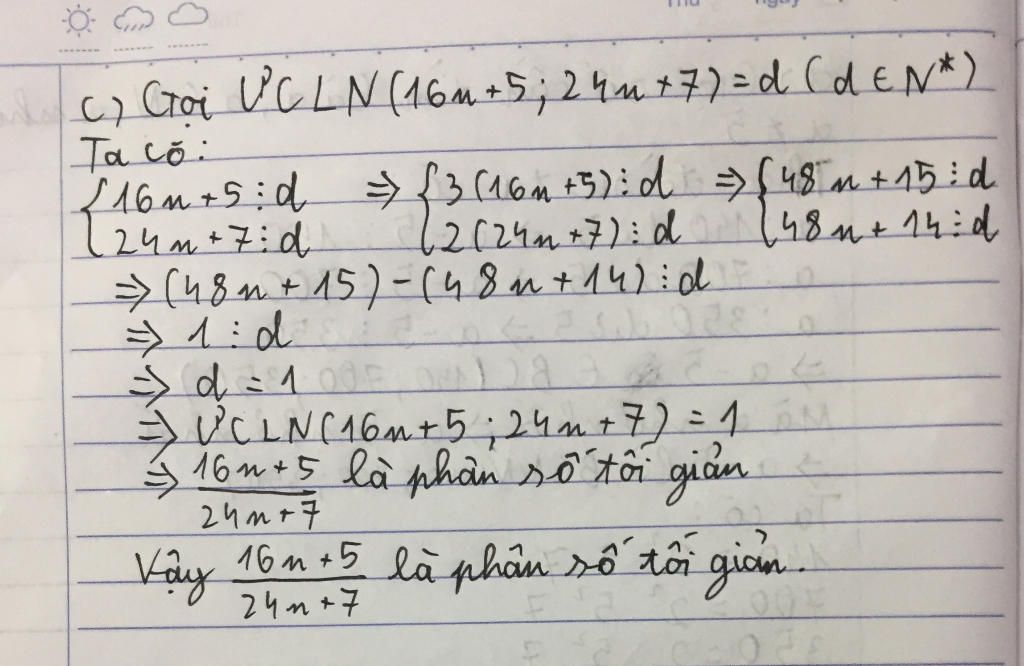 c) Gọi ƯCLN(16n+5; 24n+7)=d (d∈N*)
Ta có:
{16n+5⋮d ⇒ {3(16n+5)⋮d ⇒ {48n+15⋮d
{24n+7⋮d {2(24n+7)⋮d {48n+14⋮d
⇒(48n+15)-(48n+14)⋮d
⇒ 1⋮d
⇒ d=1
⇒ƯCLN(16n+5;24n+7)=1
⇒ (16n+5)/(24n+7) là phân số tối giản
Vậy (16n+5)/(24n+7) là phân số tối giản.